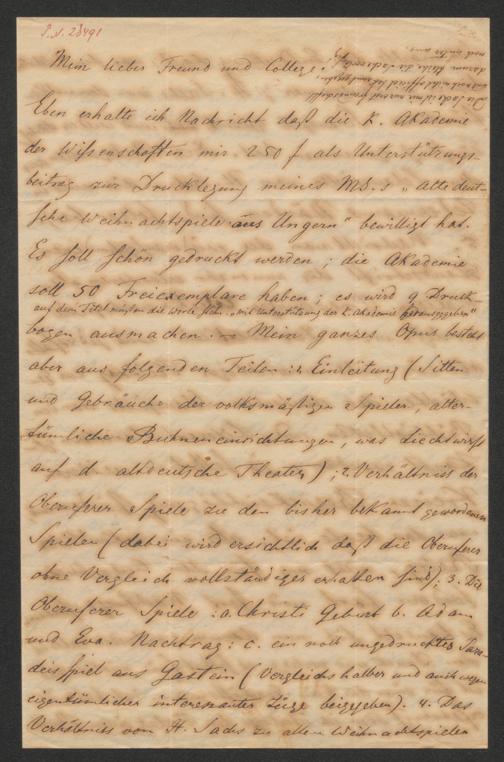 I. N. 28491
Mein lieber Freund und College!
Eben erhalte ich Nachricht daß die K. Akademie
der Wißenschaften mir 250 f als Unterstützungs-
beitrag zur Drucklegung meines MS.s „Alte deut-
sche Weihnachtspiele aus Ungern“ bewilligt hat.
Es soll schön gedruckt werden; die Akademie
soll 50 Freiexemplare haben; es wird 9 Druck-
auf dem Titel müßen die Worte stehn „mit Unterstützung der K. Akademie herausgegeben“
bogen ausmachen. – Mein ganzes Opus besteht
aber aus folgenden Teilen: 1. Einleitung (Sitten
und Gebräuche der volksmäßigen Spieler, alter-
tümliche Buhneneinrichtungen, was Licht wirft
auf d altdeutsche Theater); 2. Verhältniss der
Oberuferer Spiele zu den bisher bekannt gewordenen
Spielen (dabei wird ersichtlich daß die Oberuferer
ohne Vergleich vollständiger erhalten sind); 3. Die
Oberuferer Spiele: a. Christi Geburt b. Adam
und Eva. Nachtrag: c. ein noch ungedrucktes Para-
deisspiel aus Gastein (Vergleichs halber und auch wegen
eigentümlicher interessanter Züge beigegeben). 4. Das
Verhältniss von H. Sachs zu allen Weihnachtspielen